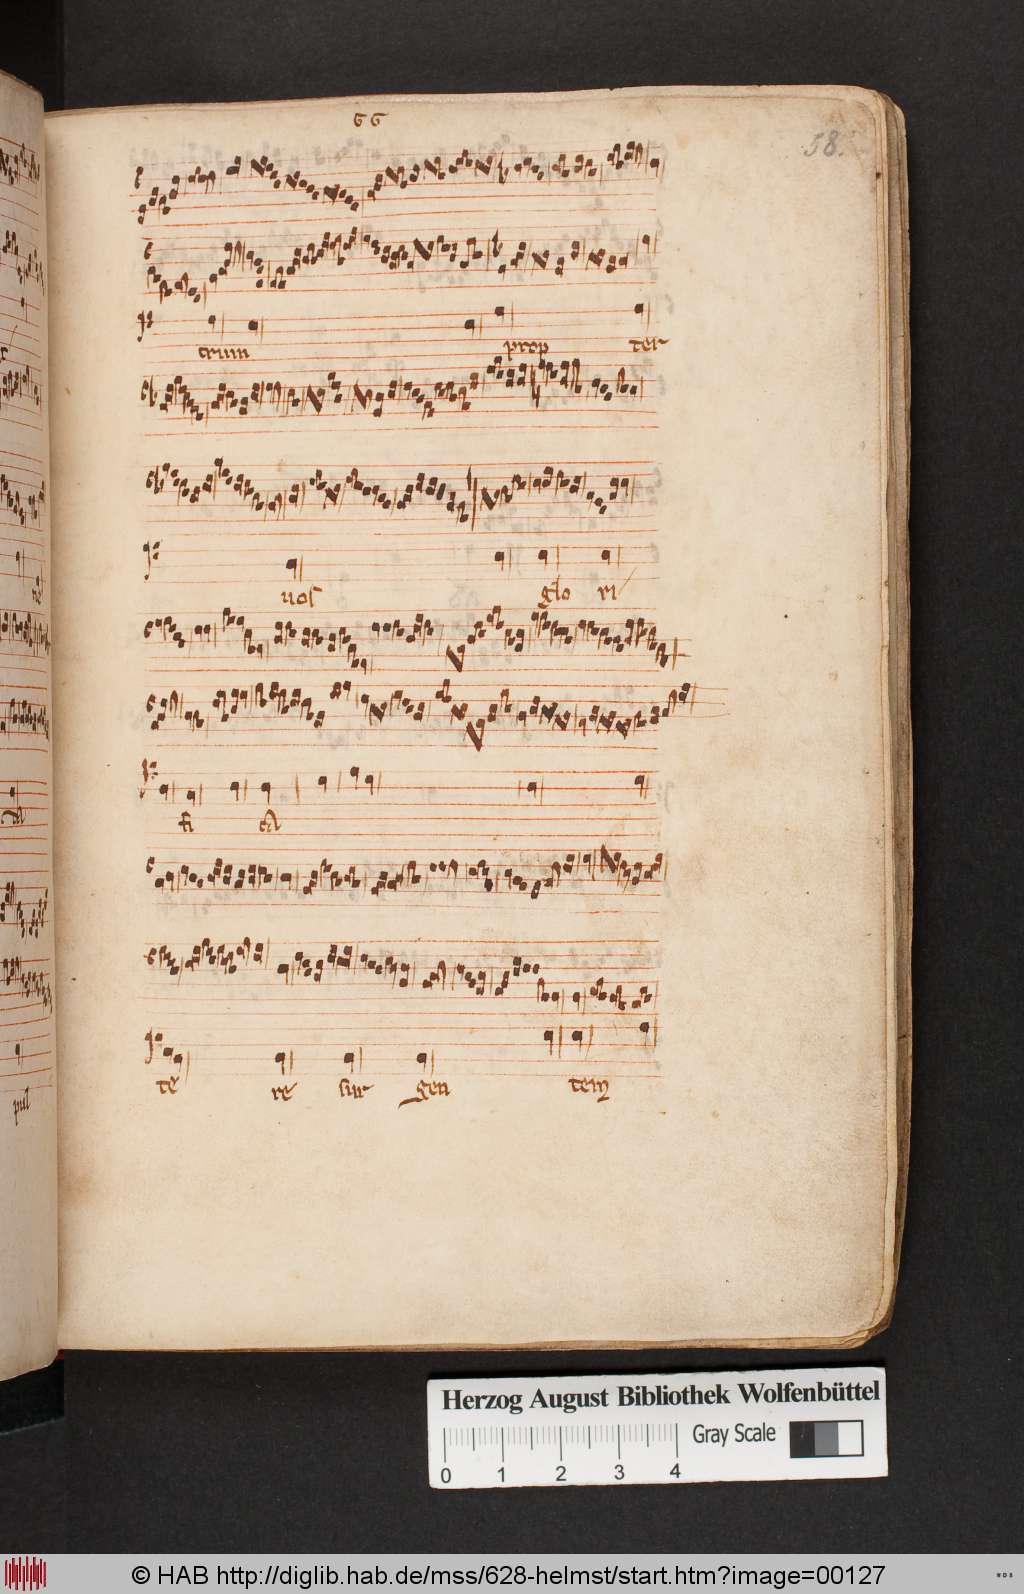 66
58.
trum prop ter
nos glo ri
fi ca
te re sur gen tem
pul
Herzog August Bibliothek Wolfenbüttel
Gray Scale
0 1 2 3 4
© HAB http://diglib.hab.de/mss/628-helmst/start.htm?image=00127